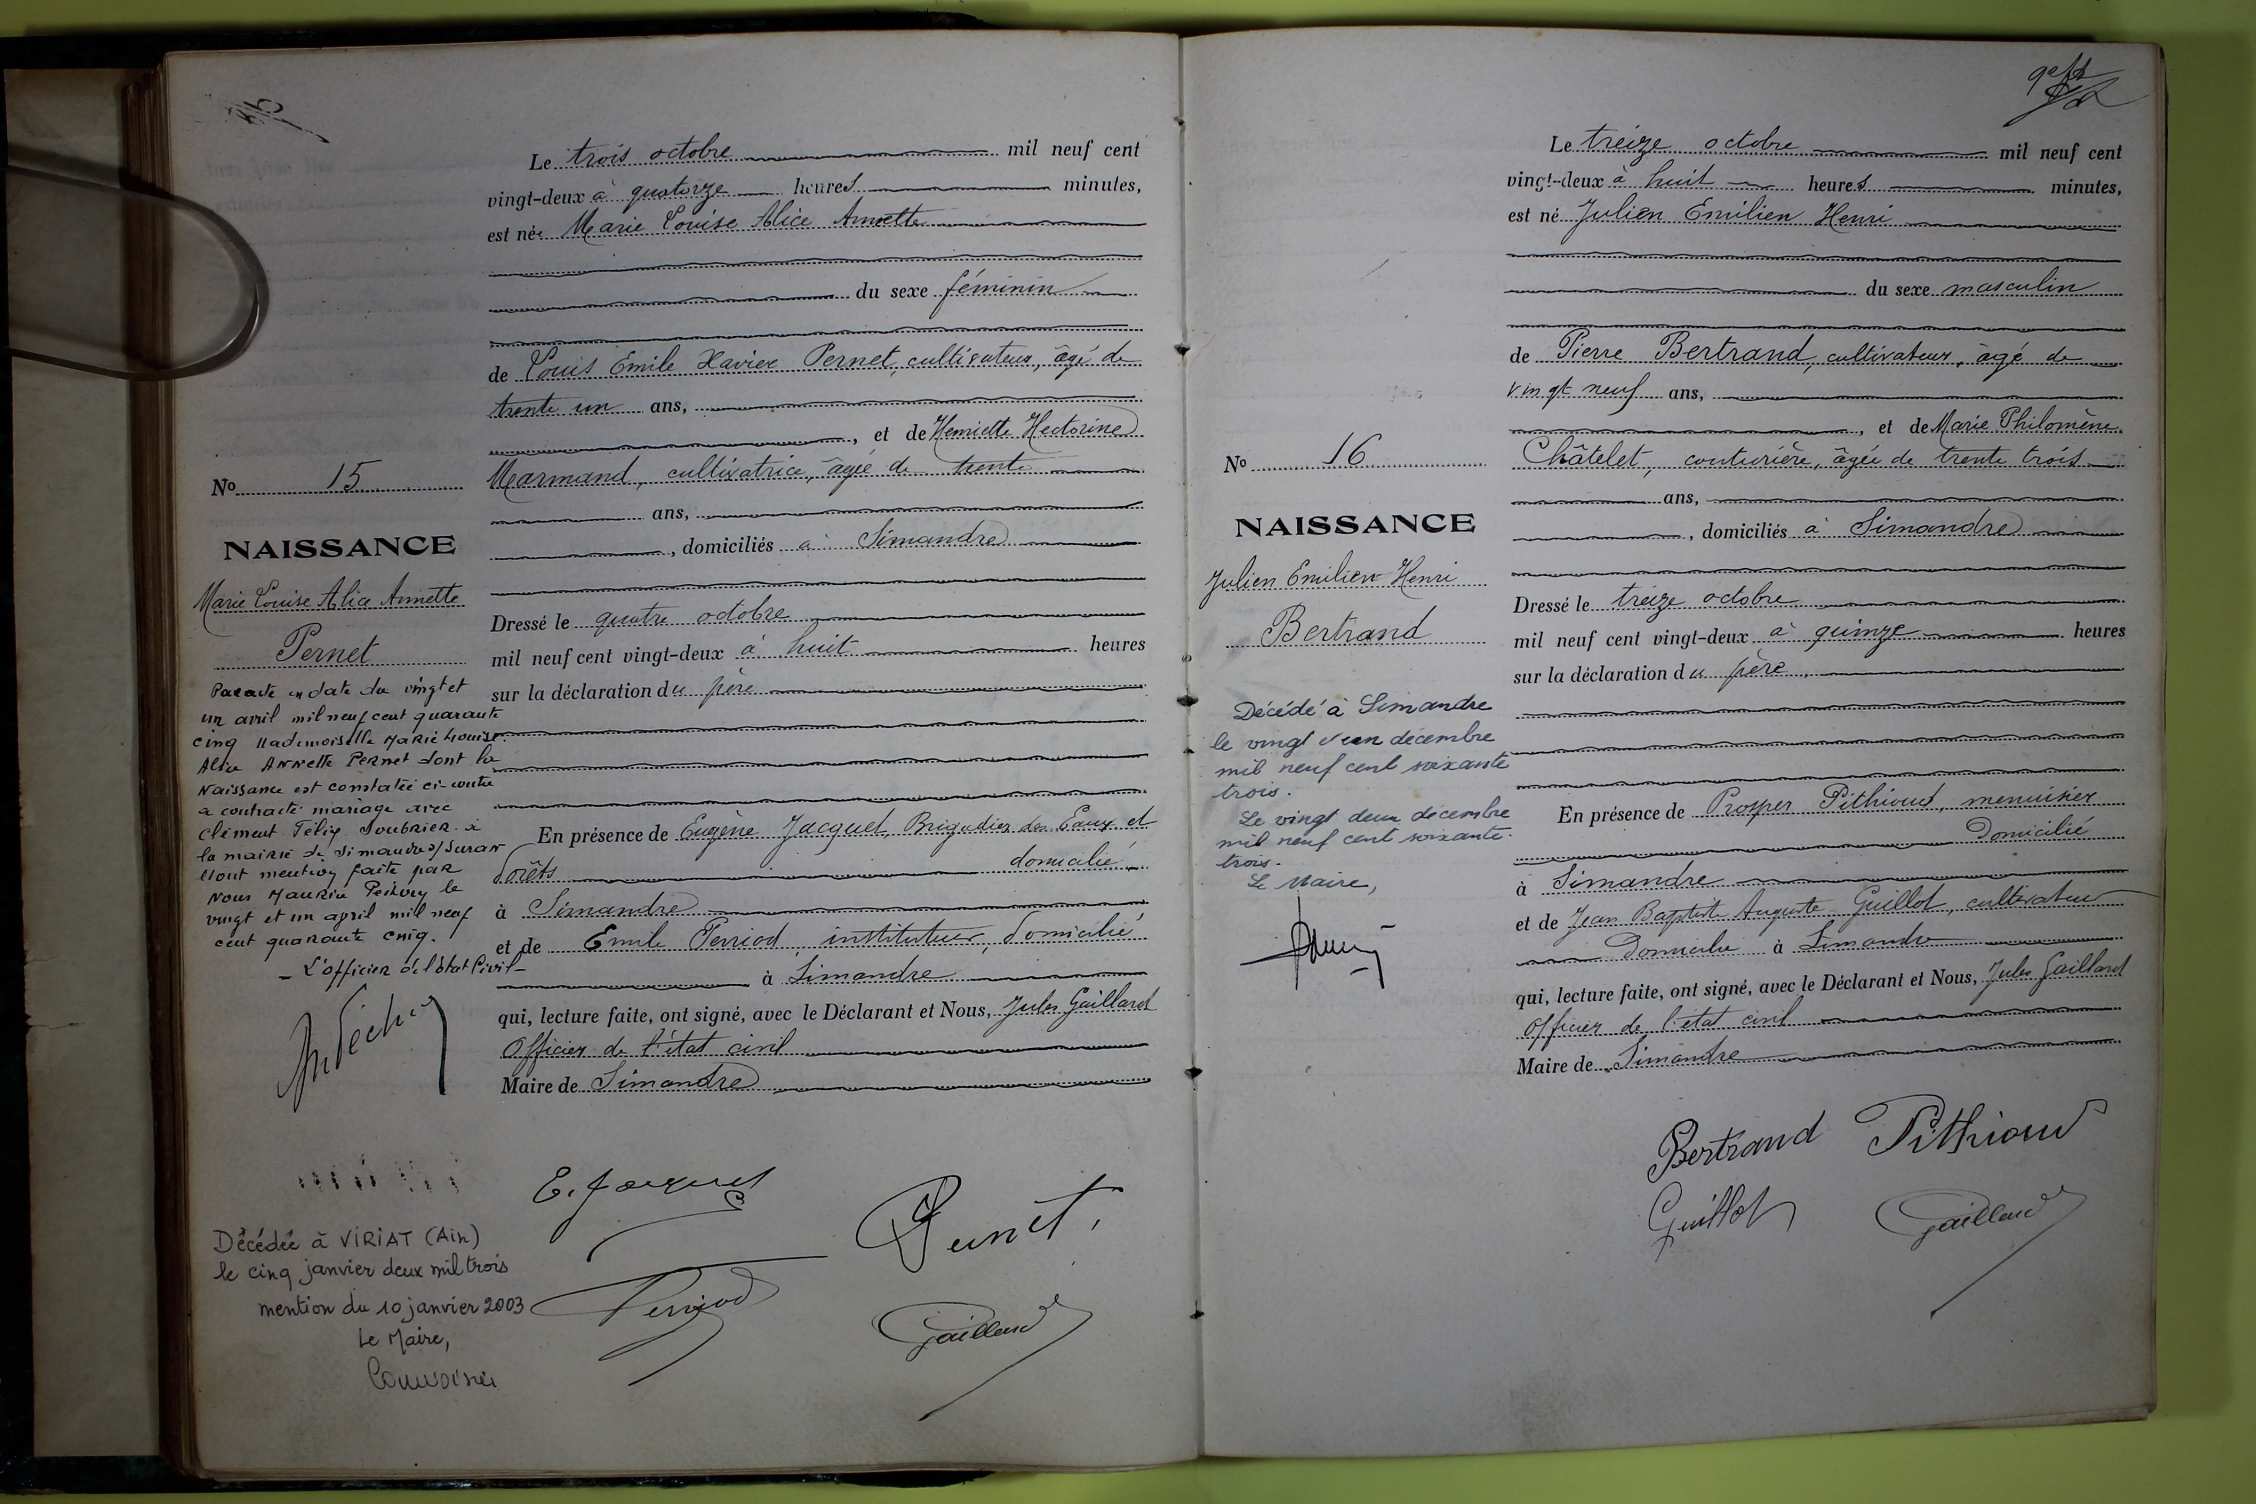 Le trois octobre mil neuf cent
vingt-deux à quatorze heures minutes,
est née Marie Louise Alice Annette
du sexe féminin
de Louis Emile Xavier Pernet, cultivateur, âgé de
trente un ans,
, et de Henriette Hectorine
Marmand, cultivatrice, âgée de trente
ans,
, domiciliés à Simandre
Dressé le quatre octobre
mil neuf cent vingt-deux à huit heures
sur la déclaration du père
En présence de Eugène Jacquet, Brigadier des Eaux et
forêts domicilié
à Simandre
et de Emile Perriod instituteur, domicilié
à Simandre
qui, lecture faite, ont signé, avec le Déclarant et Nous, Jules Gaillard
Officier de l'état civil
Maire de Simandre
No 15
NAISSANCE
Marie Louise Alice Annette
Pernet
Par acte en date du vingt et
un avril mil neuf cent quarante
cinq Mademoiselle Marie Louise
Alice Annette Pernet dont la
Naissance est constatée ci-contre
a contracté mariage avec
Clément Félix Soubrier à
la mairie de Simandre s/ Suran
Dont mention faite par
Nous Maurice Pechoy le
vingt et un avril mil neuf
cent quarante cinq.
- L'officier de l'état Civil -
Décédée à VIRIAT (Ain)
le cinq janvier deux mil trois
mention du 10 janvier 2003
Le Maire,
E. Jacquet
Pernet
Perriod
Gaillard
Le treize octobre mil neuf cent
vingt-deux à huit heures minutes,
est né Julien Emilien Henri
du sexe masculin
de Pierre Bertrand, cultivateur, âgé de
vingt neuf ans,
, et de Marie Philomène
Châtelet, couturière, âgée de trente trois
ans,
, domiciliés à Simandre
Dressé le treize octobre
mil neuf cent vingt-deux à quinze heures
sur la déclaration du père
En présence de Prosper Pithioud, menuisier
Domicilié
à Simandre
et de Jean Baptiste Auguste Guillot, cultivateur
Domicilié à Simandre
qui, lecture faite, ont signé, avec le Déclarant et Nous, Jules Gaillard
Officier de l'état civil
Maire de Simandre
No 16
NAISSANCE
Julien Emilien Henri
Bertrand
Décédé à Simandre
le vingt un décembre
mil neuf cent soixante
trois.
Le vingt deux décembre
mil neuf cent soixante
trois.
Le Maire,
Bertrand Pithioud
Guillot Gaillard